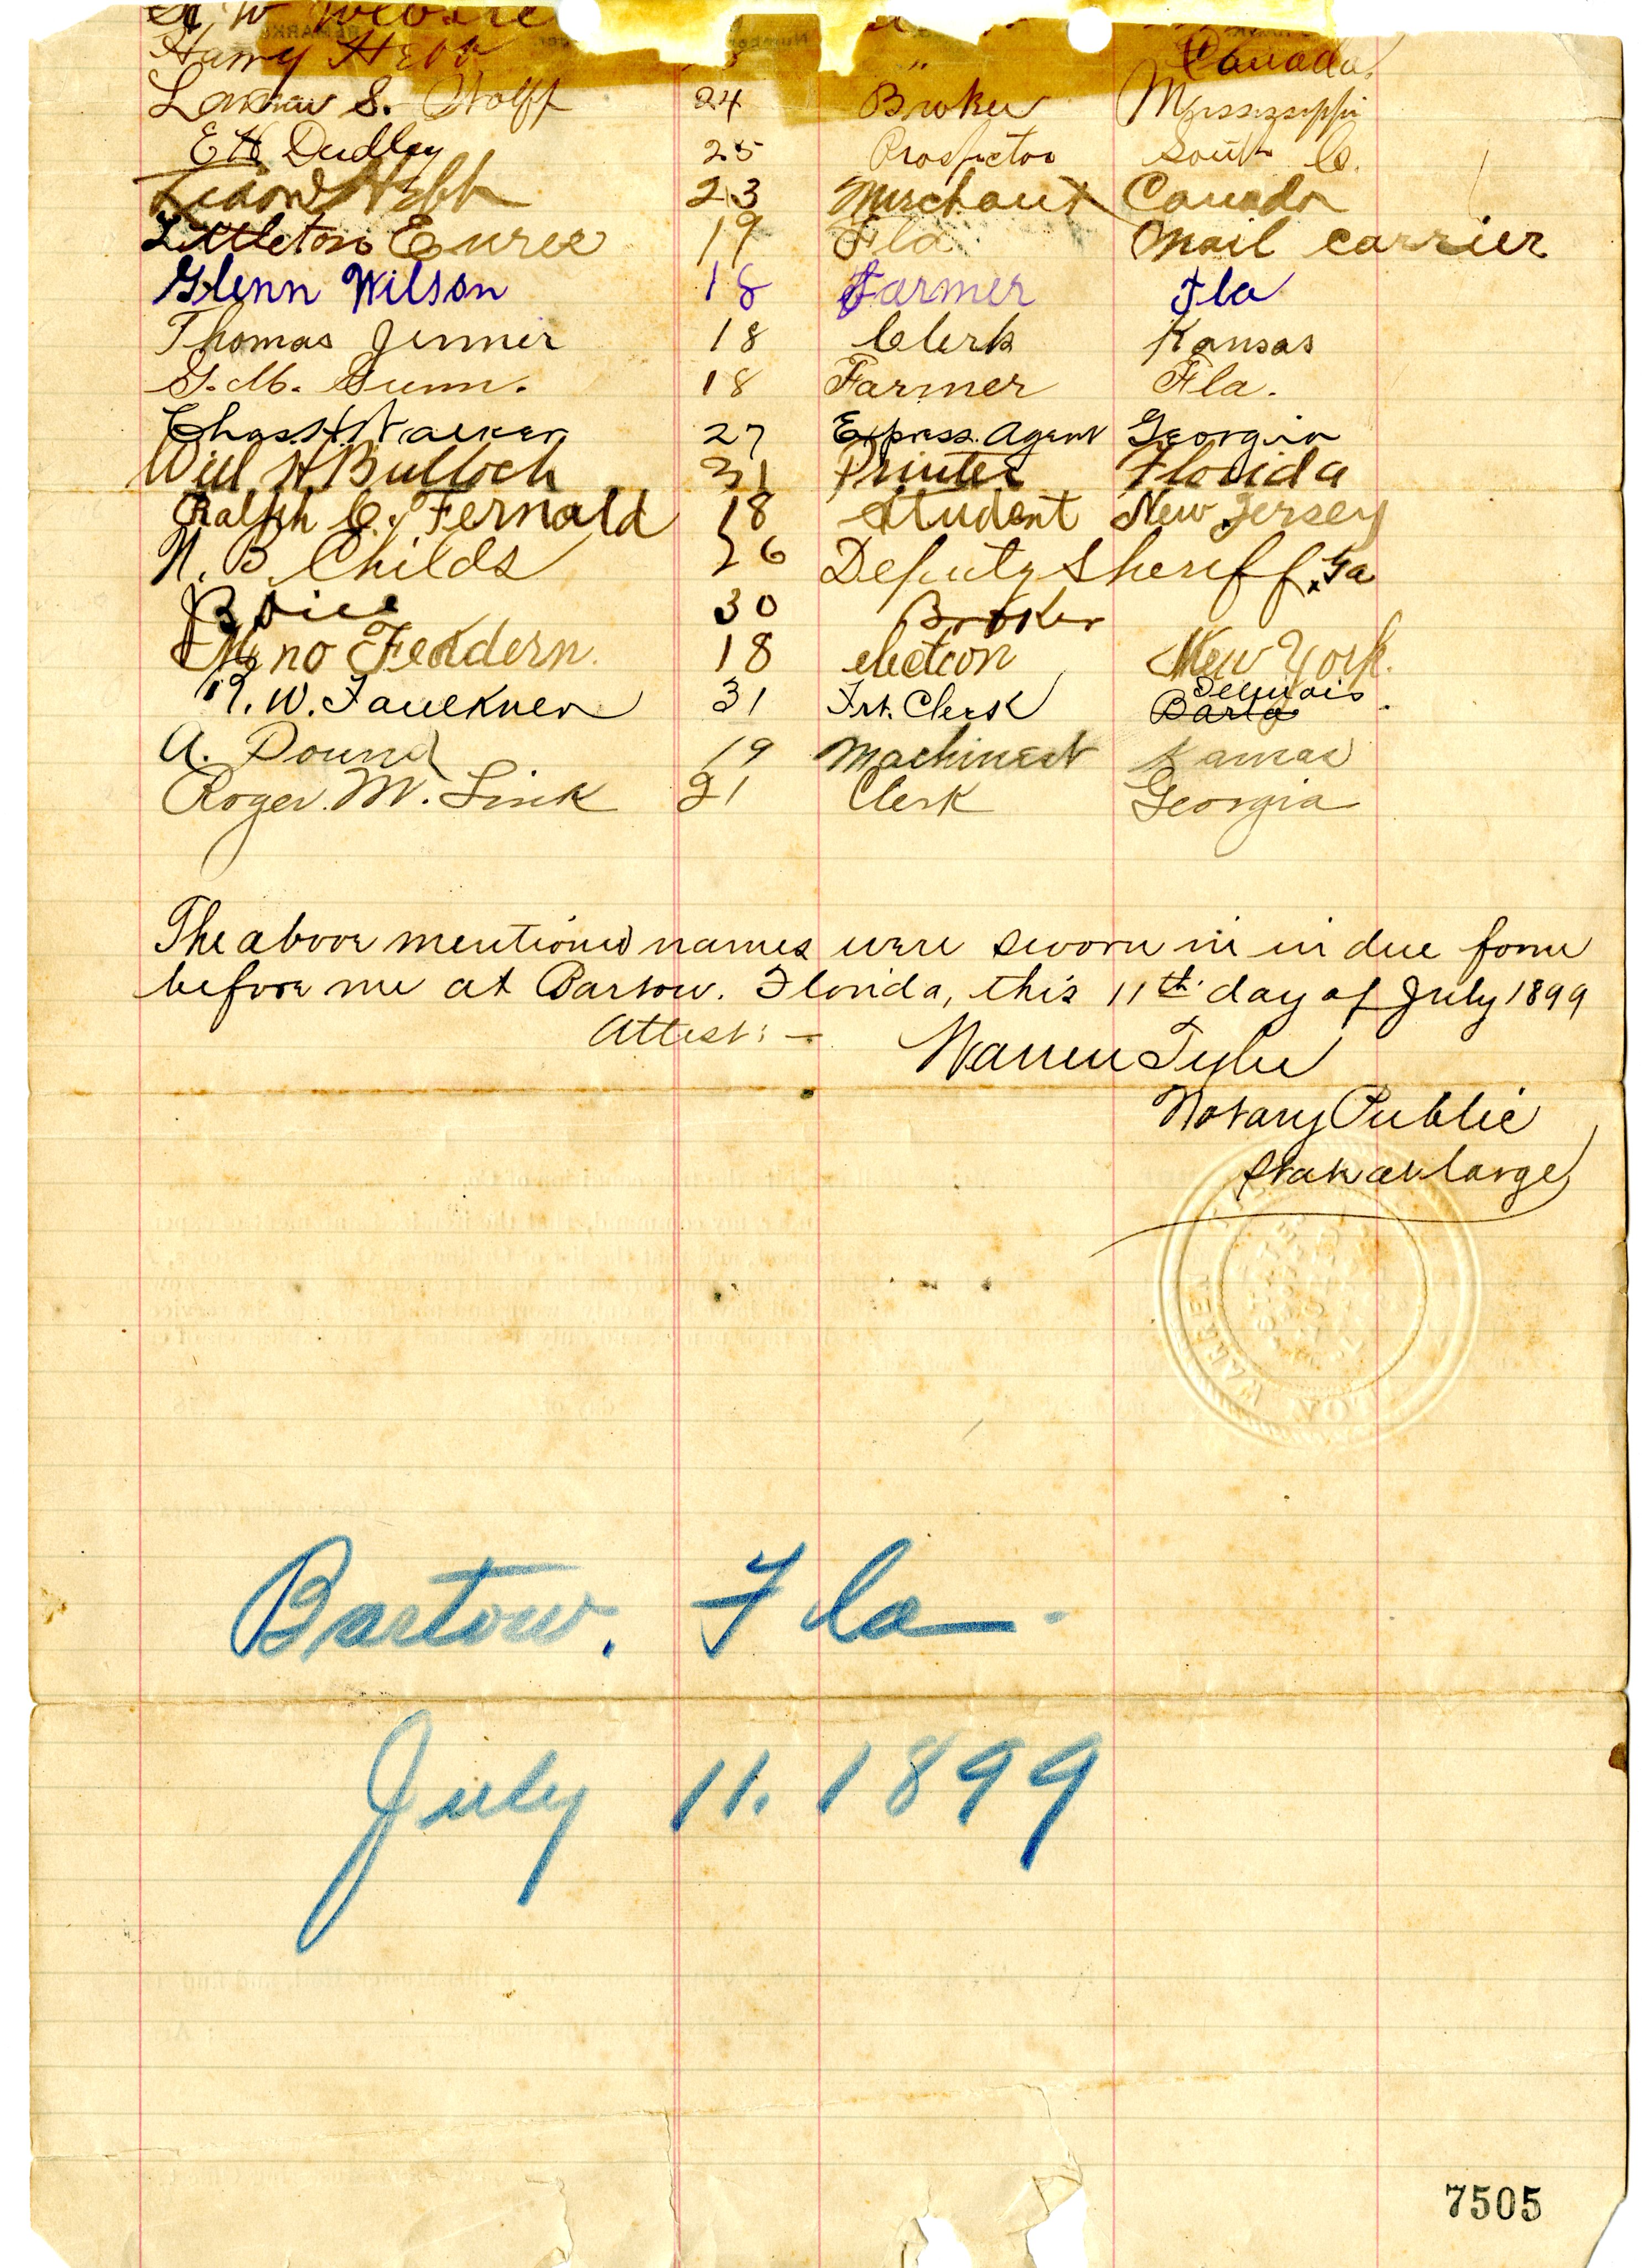 Harry Canada.
S. Wolff 24 Broker Mississippi
E H Dudley 25 Prospector South C.
23 Merchant Canada
Littleton 19 Fla Mail carrier
Glenn Wilson 18 Farmer Fla
Thomas Jenner 18 Clerk Kansas
G. M. Gunn. 18 Farmer Fla.
Chas. H. Walker 27 Express. Agent Georgia
Will H Bullock 31 Printer Florida
Ralph C. Fernald 18 Student New Jersey
N. B. Childs 26 Deputy Sheriff Ga
30 Broker
18 New York.
W. Faulkner 31 Frt. Clerk
A. Pound 19 Machinest Kansas
Roger. M. Link 21 Clerk Georgia
The above mentioned names were sworn in in due form
before me at Bartow. Florida, this 11th day of July 1899
Attest: — Warren Tyler
Notary Public
State at large
WARREN
Bartow. Fla.
July 11. 1899
7505